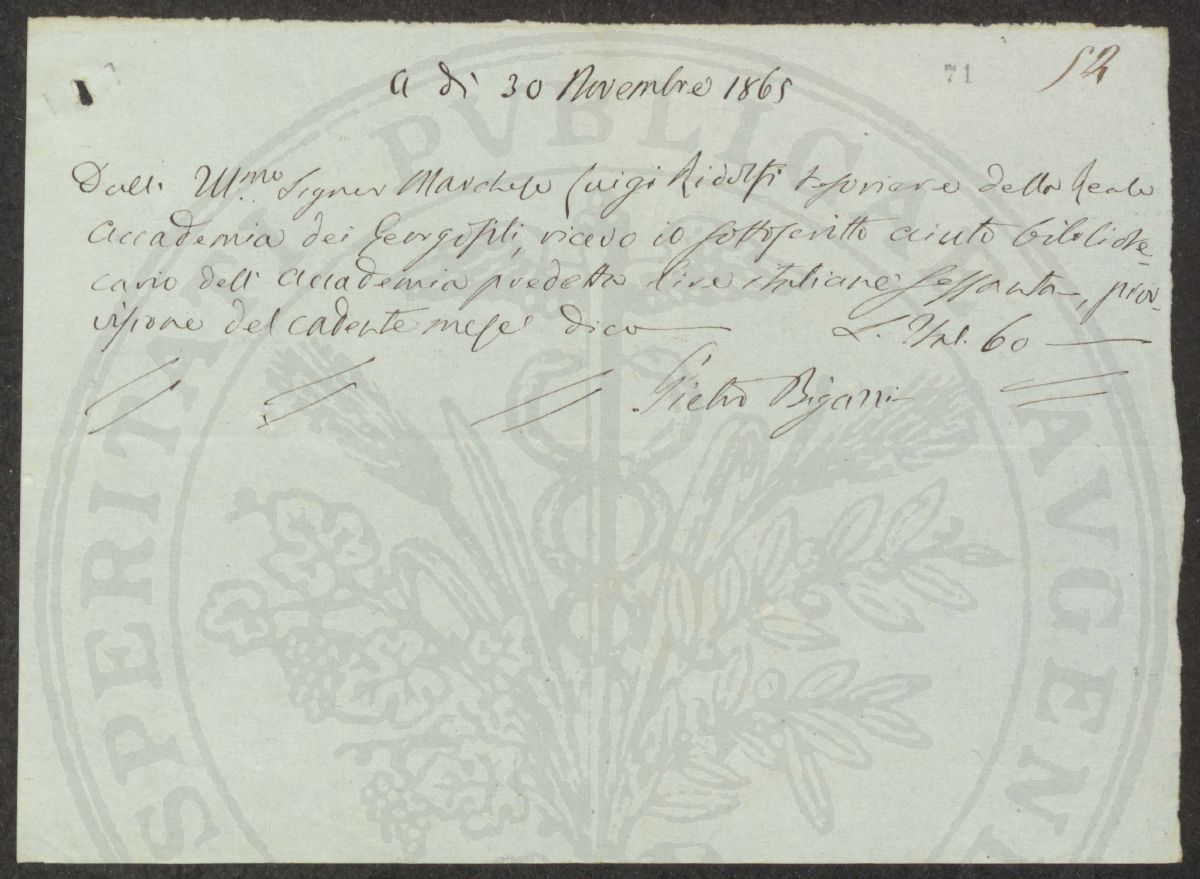 71
52
A dì 30 Novembre 1865
Dall' Ill.mo Signor Marchese Luigi Ridolfi Tesoriere della Reale
Accademia dei Georgofili, ricevo io sottoscritto aiuto bibliote-
cario dell' Accademia predetta lire italiane sessanta, prov-
visione del cadente mese dico — L. Ital. 60 —
Pietro Bigazzi
PROSPERITATI PVBLICAE AVGENDAE